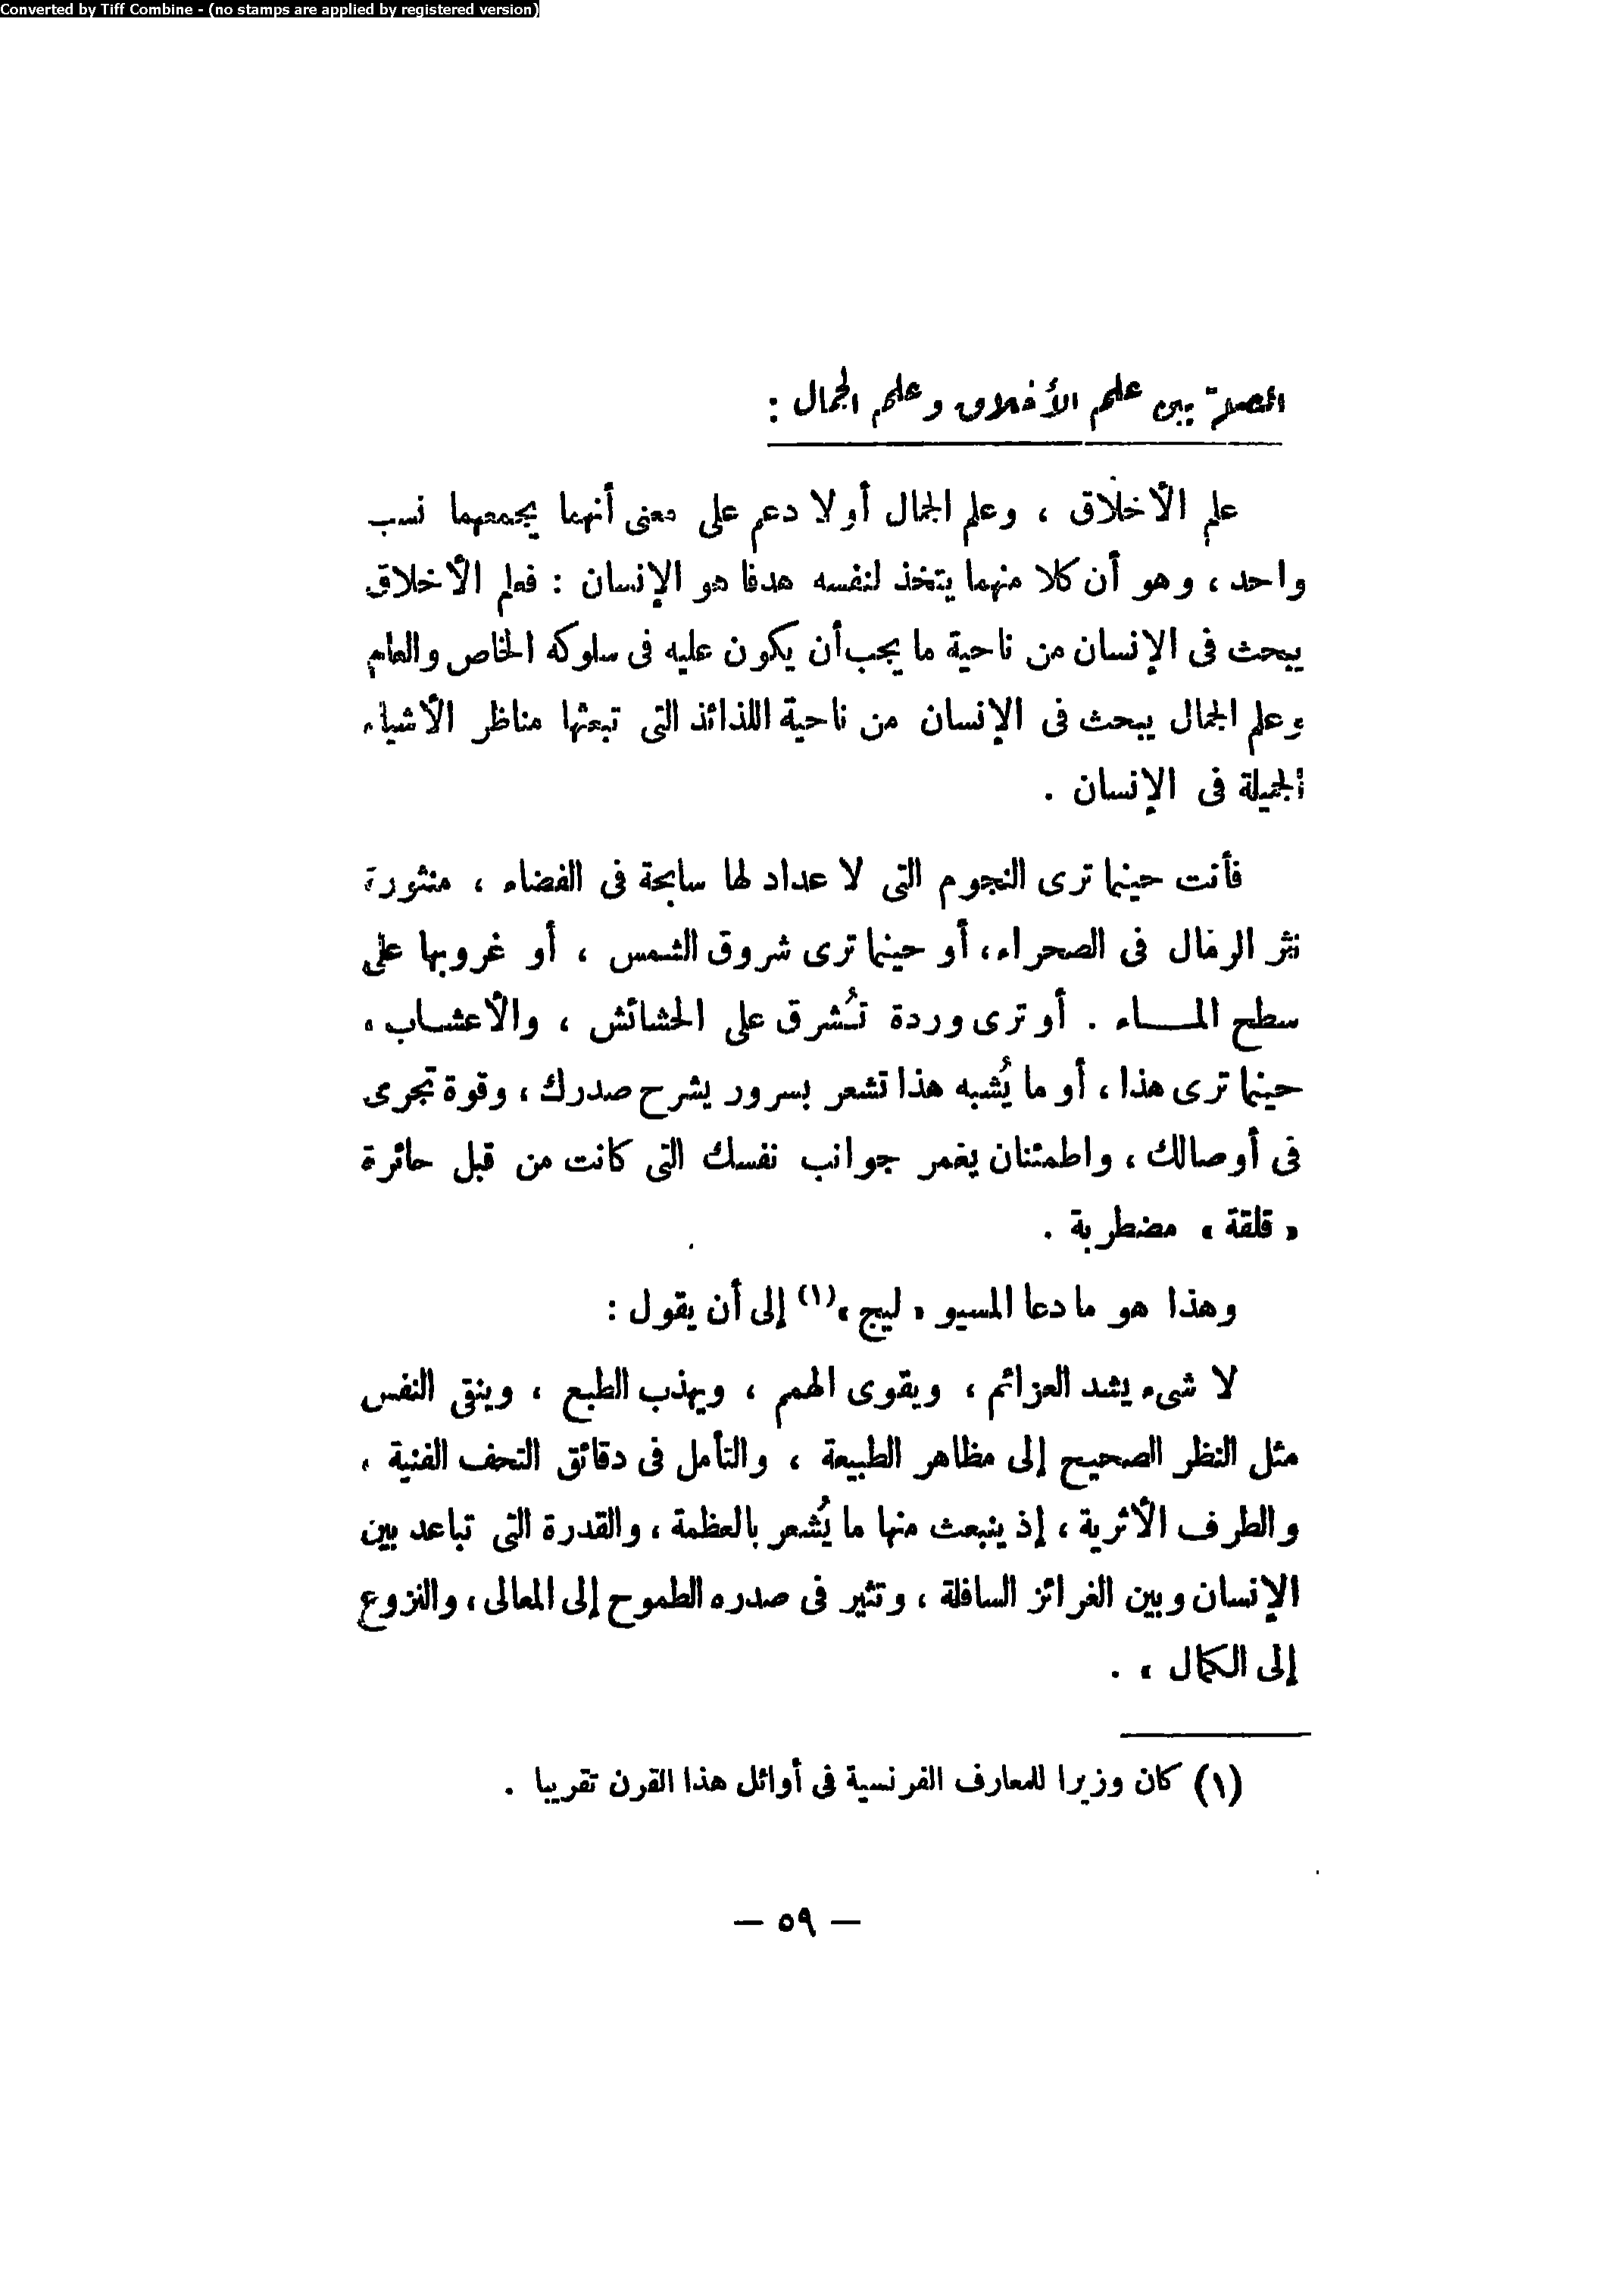 Converted by Tiff Combine - (no stamps are applied by registered version)
الصلة بين علم الأخلاق وعلم الجمال :
علم الأخلاق ، وعلم الجمال أولا دعم على معنى أنهما يجمعهما نسب
واحد ، وهو أن كلا منهما يتخذ لنفسه هدفا هو الإنسان : فعلم الأخلاق
يبحث فى الإنسان من ناحية ما يجب أن يكون عليه فى سلوكه الخاص والعام
وعلم الجمال يبحث فى الإنسان من ناحية اللذائذ التى تبعثها مناظر الأشياء
الجميلة فى الإنسان .
فأنت حينما ترى النجوم التى لا عداد لها سابحة فى الفضاء ، منثورة
نثر الرمال فى الصحراء ، أو حينما ترى شروق الشمس ، أو غروبها على
سطح المـــاء . أو ترى وردة تُشرق على الحشائش ، والأعشـاب ،
حينما ترى هذا ، أو ما يُشبه هذا تشعر بسرور يشرح صدرك ، وقوة تجرى
فى أوصالك ، واطمئنان يغمر جوانب نفسك التى كانت من قبل حائرة
« قلقة » مضطربة .
وهذا هو ما دعا المسيو « ليج »(١) إلى أن يقول :
لا شىء يشد العزائم ، ويقوى الهمم ، ويهذب الطبع ، وينقى النفس
مثل النظر الصحيح إلى مظاهر الطبيعة ، والتأمل فى دقائق التحف الفنية ،
والطرف الأثرية ، إذ ينبعث منها ما يُشعر بالعظمة ، والقدرة التى تباعد بين
الإنسان وبين الغرائز السافلة ، وتثير فى صدره الطموح إلى المعالى ، والنزوع
إلى الكمال » .
(١) كان وزيرا للمعارف الفرنسية فى أوائل هذا القرن تقريبا .
— ٥٩ —